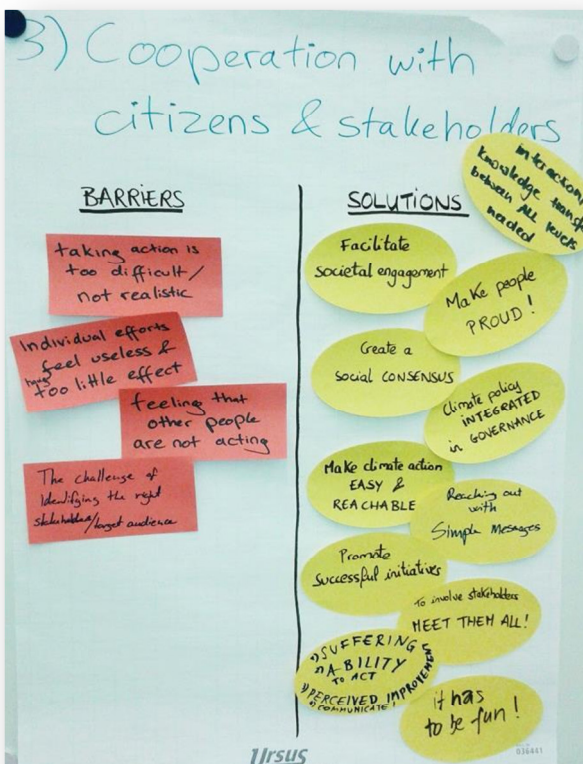 3) Cooperation with
citizens & stakeholders
BARRIERS
taking action is
too difficult/
not realistic
Individual efforts
feel useless &
having too little effect
feeling that
other people
are not acting
The challenge of
Identifying the right
stakeholders/target audience
SOLUTIONS
interaction,
knowledge transfer
between ALL levels
needed
Facilitate
societal engagement
Make people
PROUD!
Create a
social CONSENSUS
Climate policy
INTEGRATED
in GOVERNANCE
Make climate action
EASY &
REACHABLE
Reaching out
with
Simple Messages
Promote
successful initiatives
To involve stakeholders
MEET THEM ALL!
SUFFERING
ABILITY
TO ACT
PERCEIVED IMPROVEMENT
COMMUNICATE!
it has
to be fun!
Ursus
036441